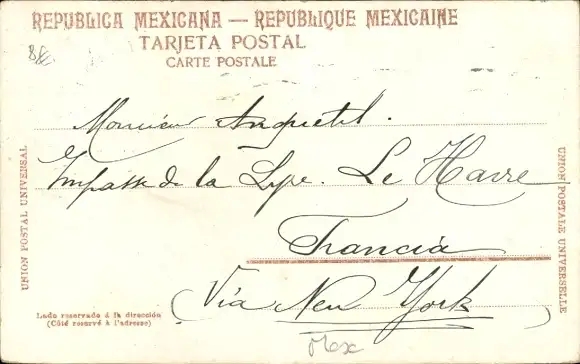 REPUBLICA MEXICANA — REPUBLIQUE MEXICAINE
TARJETA POSTAL
CARTE POSTALE
Monsieur Anquetil.
Impasse de la Lyre. Le Havre
Francia
Via New York
UNION POSTAL UNIVERSAL
UNION POSTALE UNIVERSELLE
Lado reservado á la dirección
(Côté reservé à l'adresse)
Mex